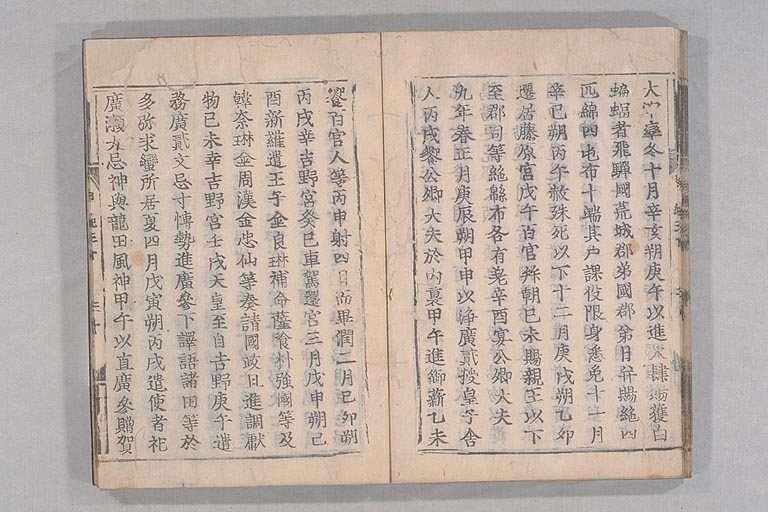 冬十月辛亥朔庚午以進大肆賜獲白
蝙蝠者飛驒國荒城郡弟國部弟日并賜絁四
匹綿四屯布十端其戸課役限身悉免十一月
辛巳朔丙午赦殊死以下十二月庚戌朔乙卯
遷居藤原宮戊午百官拜朝己未賜親王以下
至郡司等絁緜布各有差辛酉宴公卿大夫
九年春正月庚辰朔甲申以淨廣貳授皇子舍
人丙戌饗公卿大夫於內裏甲午進御薪乙未
饗百官人等丙申射四日而畢潤二月己卯朔
丙戌幸吉野宮癸巳車駕還宮三月戊申朔己
酉新羅遣王子金良琳補命薩飡朴強國等及
韓奈琳金周漢金忠仙等奏請國政且進調獻
物己未幸吉野宮壬戌天皇至自吉野庚午遣
務廣貳文忌寸博勢進廣參下譯語諸田等於
多祢求蠻所居夏四月戊寅朔丙戌遣使者祀
廣瀬大忌神與龍田風神甲午以直廣參贈賀